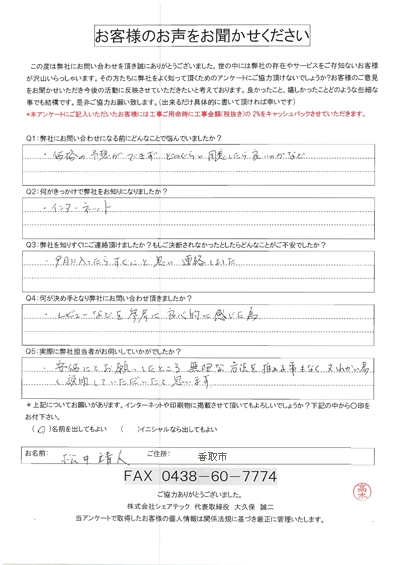 お客様のお声をお聞かせください
この度は弊社にお問い合わせを頂き誠にありがとうございました。世の中には弊社の存在やサービスをご存知ないお客様
が沢山いらっしゃいます。その方たちに弊社をよく知って頂くためのアンケートにご協力頂けないでしょうか?お客様のご意見
をお聞かせいただき今後の活動に反映させていただきたいと考えております。良かったこと、嬉しかったことどのような些細な
事でも結構です。是非ご協力お願い致します。(出来るだけ具体的に書いて頂ければ幸いです)
*本アンケートにご記入いただいたお客様には工事ご用命時に工事金額(税抜き)の2%をキャッシュバックさせていただきます。
Q1:弊社にお問い合わせになる前にどんなことで悩んでいましたか?
・価格の予想ができず どのくらい用意したら良いのかなど
Q2:何がきっかけで弊社をお知りになりましたか?
・インターネット
Q3:弊社を知りすぐにご連絡頂けましたか?もしご決断されなかったとしたらどんなことがご不安でしたか?
・9月に入ったらすぐにと思い連絡しました
Q4:何が決め手となり弊社にお問い合わせ頂きましたか?
・レビューなどを参考に 良心的に感じた為
Q5:実際に弊社担当者がお伺いしていかがでしたか?
・安価にとお願いしたところ 無理な方法を推める事もなく
説明していただいたと思います
*上記についてお願いがあります。インターネットや印刷物に掲載させて頂いてもよろしいでしょうか?下記の中から○印を
お付下さい。
(○)名前を出してもよい ( )イニシャルなら出してもよい
お名前: 松井 ご住所: 香取市
FAX 0438-60-7774
ご協力ありがとうございました。
株式会社シェアテック 代表取締役 大久保 誠二
当アンケートで取得したお客様の個人情報は関係法規に基づき厳正に管理いたします。